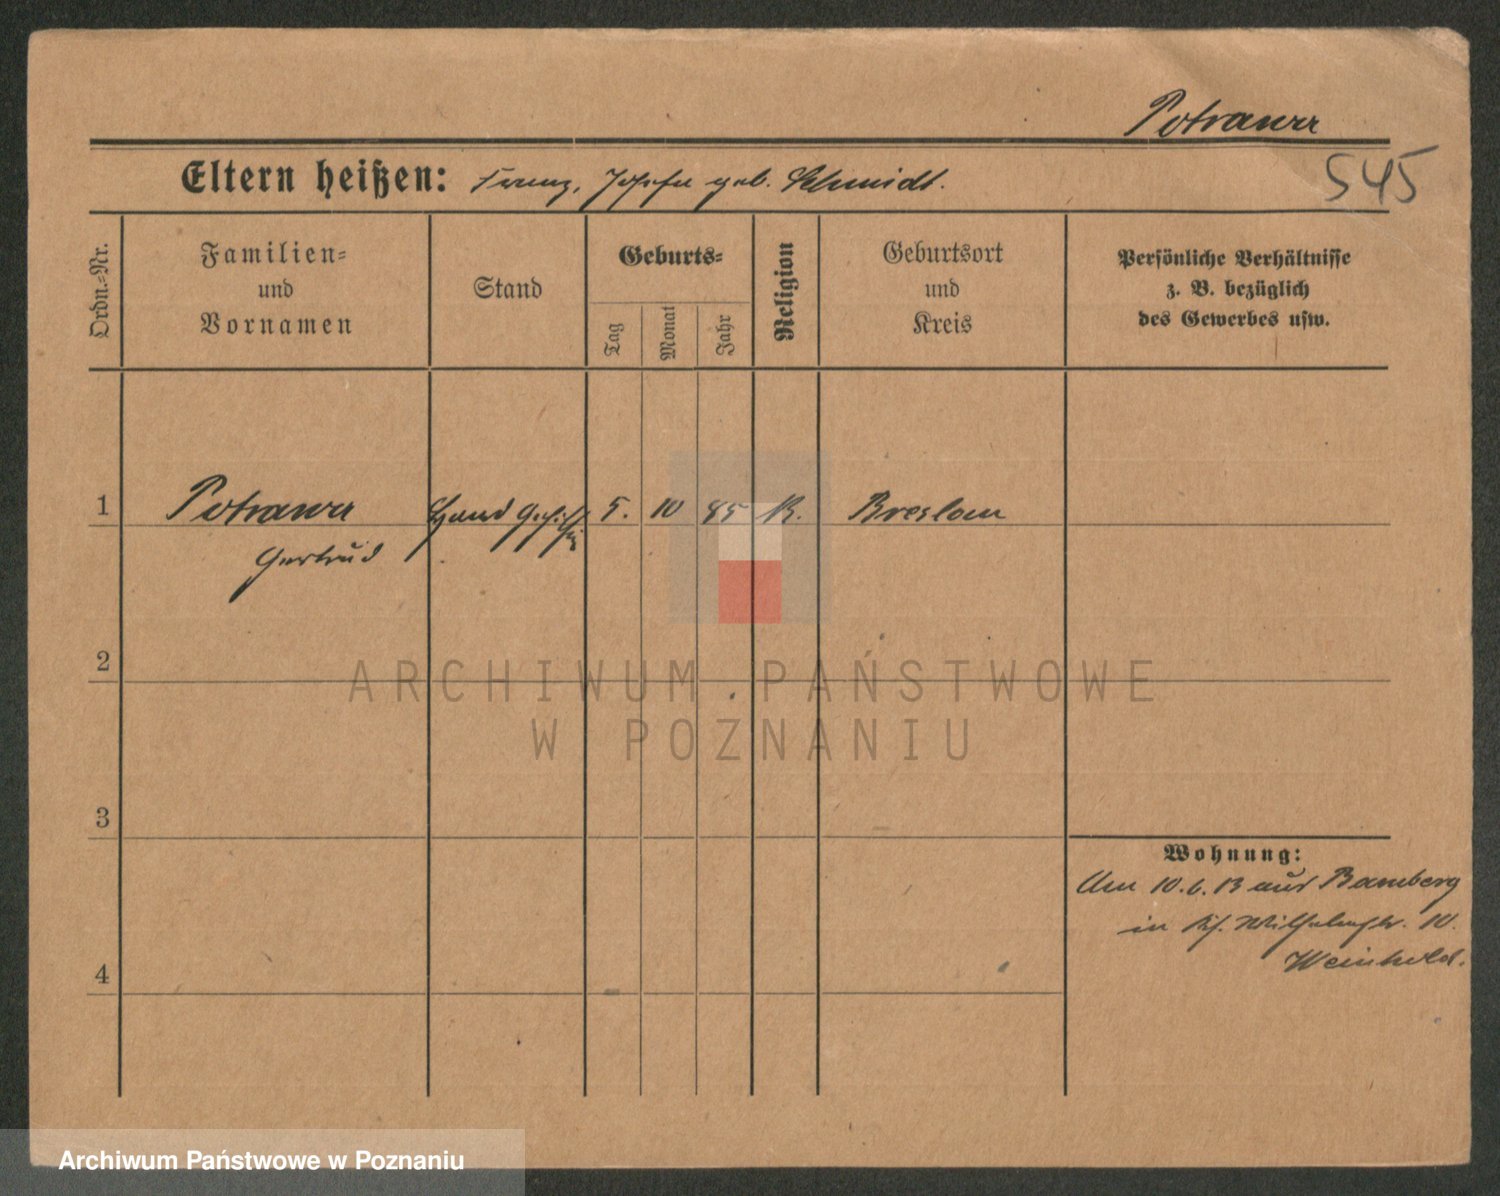 Potrawa
545
Eltern heißen: Franz, Josefa geb. Schmidt.
Ordn.-Nr.
Familien-
und
Vornamen
Stand
Geburts-
Tag
Monat
Jahr
Religion
Geburtsort
und
Kreis
Persönliche Verhältnisse
z. B. bezüglich
des Gewerbes usw.
1 Potrawa 5. 10 85 K. Breslau
Gertrud
2
ARCHIWUM PAŃSTWOWE
W POZNANIU
3
Wohnung:
Am 10.6.13 aus Bamberg
in Wilhelmstr. 10.
4
Weinhold.
Archiwum Państwowe w Poznaniu